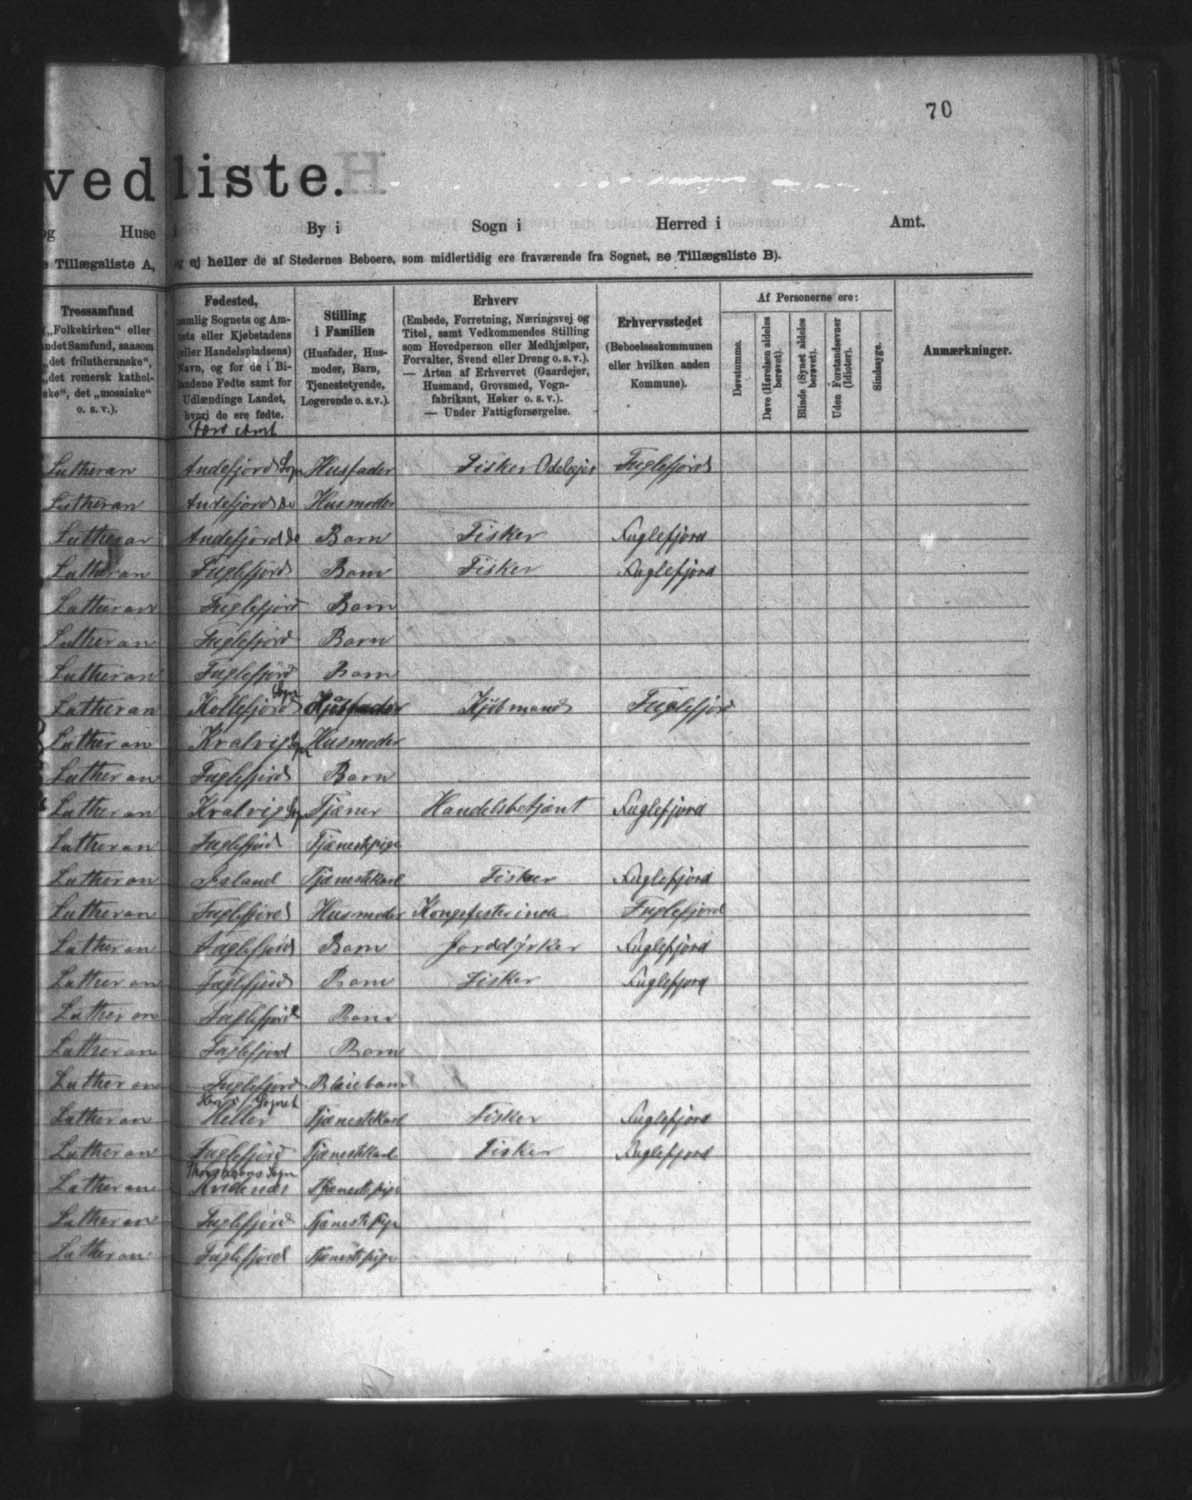 70
vedliste.
og Huse i By i Sogn i Herred i Amt.
e Tillægsliste A, og ej heller de af Stedernes Beboere, som midlertidig ere fraværende fra Sognet, se Tillægsliste B).
Trossamfund
(„Folkekirken“ eller
andet Samfund, saasom
„det frilutheranske“,
„det romersk kathol-
ske“, det „mosaiske“
o. s. v.).
Fødested,
nemlig Sognets og Am-
tets eller Kjøbstadens
(eller Handelspladsens)
Navn, og for de i Bi-
landene Fødte samt for
Udlændinge Landet,
hvori de ere fødte.
Færø Amt
Stilling
i Familien
(Husfader, Hus-
moder, Barn,
Tjenestetyende,
Logerende o. s. v.).
Erhverv
(Embede, Forretning, Næringsvej og
Titel, samt Vedkommendes Stilling
som Hovedperson eller Medhjælper,
Forvalter, Svend eller Dreng o. s. v.).
— Arten af Erhvervet (Gaardejer,
Husmand, Grovsmed, Vogn-
fabrikant, Høker o. s. v.).
— Under Fattigforsørgelse.
Erhvervsstedet
(Beboelseskommunen
eller hvilken anden
Kommune).
Af Personerne ere:
Døvstumme.
Døve (Hørelsen aldeles
berøvet).
Blinde (Synet aldeles
berøvet).
Uden Forstandsevner
(Idioter).
Sindssyge.
Anmærkninger.
Lutheran Andefjord Sogn Husfader Fisker Odelsejer Fuglefjord
Lutheran Andefjord Do Husmoder
Lutheran Andefjord Do Barn Fisker Fuglefjord
Lutheran Fuglefjord Barn Fisker Fuglefjord
Lutheran Fuglefjord Barn
Lutheran Fuglefjord Barn
Lutheran Fuglefjord Barn
Lutheran Kollefjord Sogn Husfader Kjøbmand Fuglefjord
Lutheran Kvalvig Sogn Husmoder
Lutheran Fuglefjord Barn
Lutheran Kvalvig Sogn Tjæner Handelsbetjænt Fuglefjord
Lutheran Fuglefjord Tjænestepige
Lutheran Island Tjænestekarl Fisker Fuglefjord
Lutheran Fuglefjord Husmoder Kongefesterinde Fuglefjord
Lutheran Fuglefjord Barn Jorddyrker Fuglefjord
Lutheran Fuglefjord Barn Fisker Fuglefjord
Lutheran Fuglefjord Barn
Lutheran Fuglefjord Barn
Lutheran Fuglefjord Pleiebarn
Sognet
Lutheran Heller Tjænestekarl Fisker Fuglefjord
Lutheran Fuglefjord Tjænestekarl Fisker Fuglefjord
Thorshavns Sogn
Lutheran Hvidenæs Tjænestepige
Lutheran Fuglefjord Tjænestepige
Lutheran Fuglefjord Tjænestepige